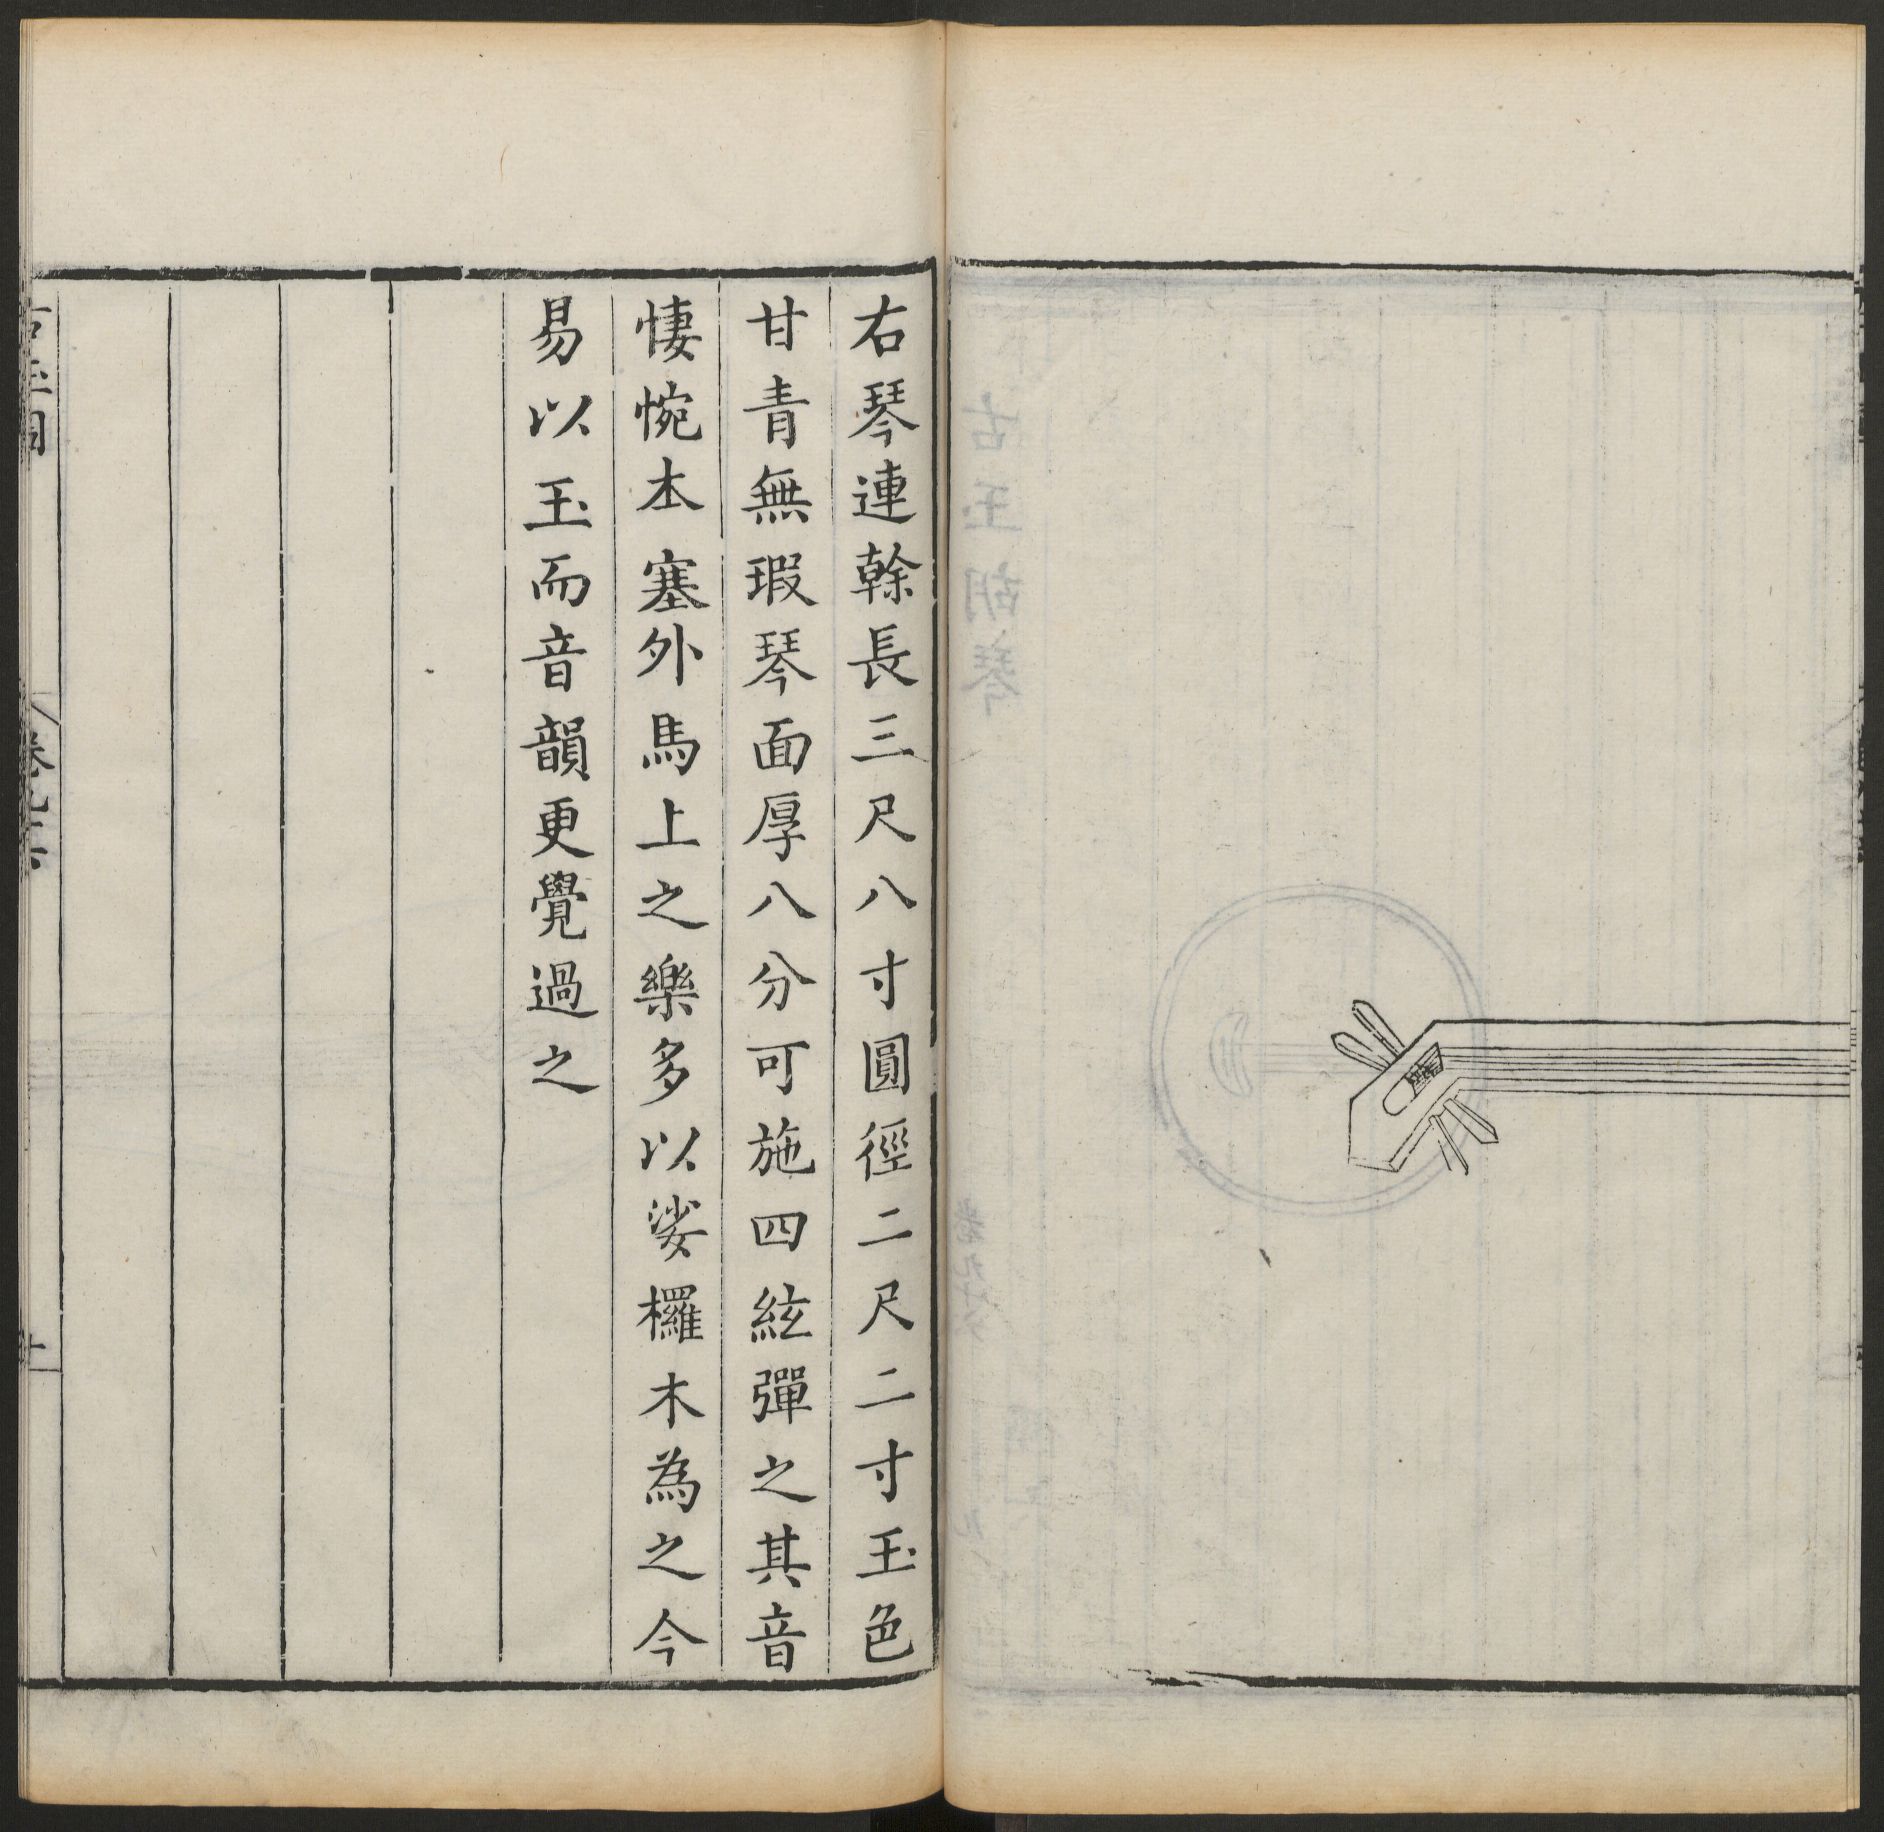 右琴連幹長三尺八寸圓徑二尺二寸玉色
甘青無瑕琴面厚八分可施四絃彈之其音
悽惋本塞外馬上之樂多以娑欏木為之今
易以玉而音韻更覺過之